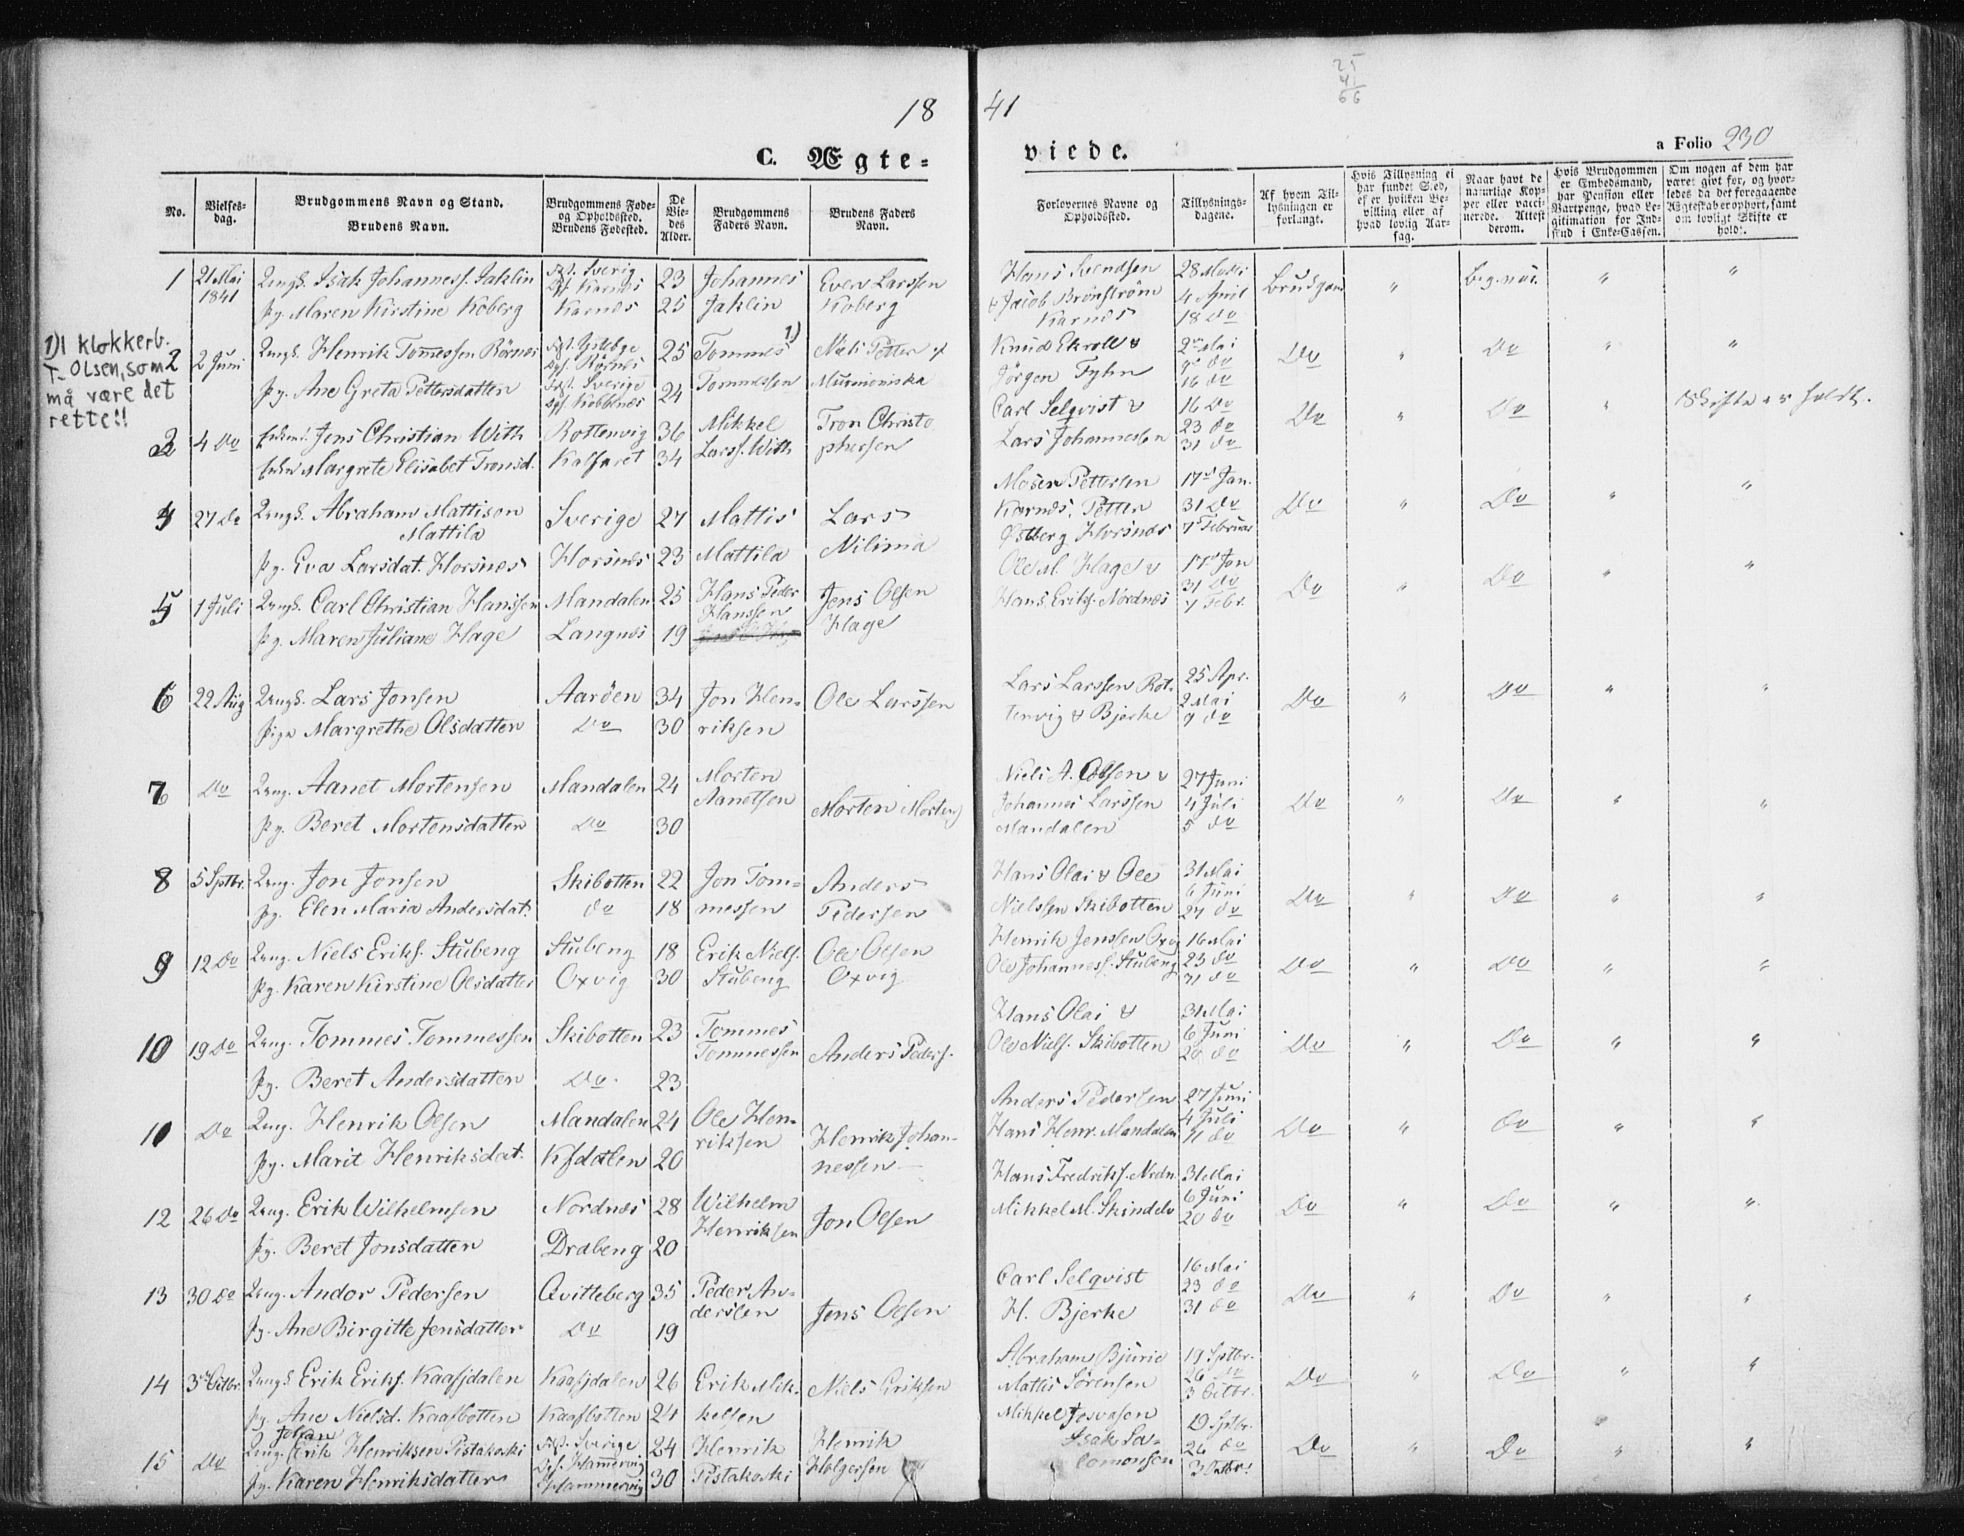 18 41
25
41
66
C. Ægte=
viede.
a Folio 230
No. Vielses-dag. Brudgommens Navn og Stand. Brudens Navn. Brudgommens Føde- og Opholdssted. Brudens Fødested. De Viedes Alder. Brudgommens Faders Navn. Brudens Faders Navn.
Forlovernes Navne og Opholdssted. Tillysnings-dagene. Af hvem Tillysningen er forlangt. Hvis Tillysning ei har fundet Sted, ef er hvilken Bevilling eller af hvad lovlig Aarsag. Naar havt de naturlige Kopper eller vaccinerede. Attest derom. Hvis Brudgommen er Embedsmand, har Pension eller Vartpenge, hvad Legitimation for Indskud i Enke-Cassen. Om nogen af dem har været givt før, og hvorledes da det foregaaende Ægteskab er ophørt, samt om lovligt Skifte er holdt.
1 21 Mai 1841 Ungk. Isak Johanness. Jaklin Fst. Sverig Ops. Karnæs 23 Johannes Even Larssen Hans Svendsen 28 Marti Brudgom " "
pg. Maren Kirstine Koberg Karnæs 25 Jaklin Koberg & Jacob Brönström 4 April
Karnæs 18 Do
1) I klokkerb.
T. Olsen, som
må være det
rette!!
2 2 Juni Ungk. Henrik Tommessen Börnæs 25 Tommes 1) Niels Petter Knud Ekroll & 2 Mai Do " Do " "
pg. Ane Greta Pettersdatter Fst. Sverige 24 Tommessen Jörgen Fyhn 9 do
16 do
4 Do Enkem. Jens Christian With Rottenvig 36 Mikkel Tron Christo Carl Selqvist & 16 Do Do " Do " Skifte er holdt.
Enken Margrete Elisabet Tronsd. Kalfaret 34 Larss. With phersen Lars Johannessen 23 do
31 do
4 27 Do Ungk. Abraham Mattison Sverige 27 Mattis Lars Moser Pettersen 17 Jan. Do " Do " "
Mattila Karnæs. Petter 31 Do
pg. Eva Larsdat. Horsnæs Horsnæs 23 Mattila Nilima Østberg Horsnæs 7 Februar
5 1 Juli Ungk. Carl Christian Hanssen Mandalen 25 Hans Peder Jens Olsen Ole M. Hage & 17 Jan Do " Do " "
Hanssen 31 Do
pg. Maren Juliane Hage Langnæs 19 Hage Hans Eriks. Nordnæs 7 Febr.
6 22 Aug Ungk. Lars Jonsen Aaröen 34 Jon Hen= Ole Larssen Lars Larssen Rot. 25 Apr. Do " Do " "
pige Margrethe Olsdatter Do 30 riksen tenvig & Bjerke 2 Mai
9 do
7 Do Ung. Aanet Mortensen Mandalen 24 Morten Aanetsen Morten Morten Niels A. Olsen & 27 Juni Do " Do " "
pg. Beret Mortensdatter Do 30 Johannes Larssen 4 Juli
Mandalen 5 do
8 5 Sptbr. Ung. Jon Jonsen Skibotten 22 Jon Tom= Anders Hans Olai & Ole 31 Mai Do " Do " "
pg. Elen Maria Andersdat. do 18 messen Pedersen Nielssen Skibotten 6 Juni
9 12 Do Ung. Niels Eriks. Stubeng Stubeng 18 Erik Niels. Ole Olsen Henrik Jenssen Oxvig 16 Mai Do " Do " "
pg. Karen Kirstine Olsdatter Oxvig 30 Stubeng Oxvig Ole Johanness. Stubeng 23 do
31 do
10 19 Do Ung. Tommes Tommessen Skibotten 23 Tommes Tommessen Anders Peders. Hans Olai & 31 Mai Do " Do " "
pg. Beret Andersdatter Do 23 Ole Niels. Skibotten 6 Juni
20 do
11 Do Ung. Henrik Olsen Mandalen 24 Ole Hen= Henrik Johan= Anders Pedersen 27 Juni Do " Do " "
pg. Marit Henriksdat. Kfdalen 20 riksen nessen Hans Henr. Mandalen 4 Juli
11 do
12 26 Do Ung. Erik Wilhelmsen Nordnæs 28 Wilhelm Jon Olsen Hans Fredriks. Nrdn. 31 Mai Do " Do " "
pg. Beret Jonsdatter Drabeng 20 Henriksen Mikkel M. Skindelv 6 Juni
20 do
13 30 Do Ung. Andor Pedersen Qvitteberg 35 Peder An= Jens Olsen Carl Selqvist 16 Mai Do " Do " "
pg. Ane Birgitte Jensdatter Do 19 dersen H. Bjerke 23 do
31 do
14 3 Octbr. Ungk Erik Eriks. Kaafjdalen Kaafjdalen 26 Erik Mik= Niels Eriksen Abraham Bjurie 19 Sptbr. Do " Do " "
pg. Ane Nielsd. Kaafbotten Kaafbotten 24 kelsen Mattis Sörensen 26 Do
3 Octbr.
15 Do Ung. Johan Erik Henriksen Pistakoski Fst. Sverige 24 Henrik Henrik Mikkel Josvasen 19 Sptbr. Do " Do " "
pg. Karen Henriksdatter Hammervig 30 Pistakoski Holgersen Isak Sa= 26 do
lomonsen 3 Octbr.